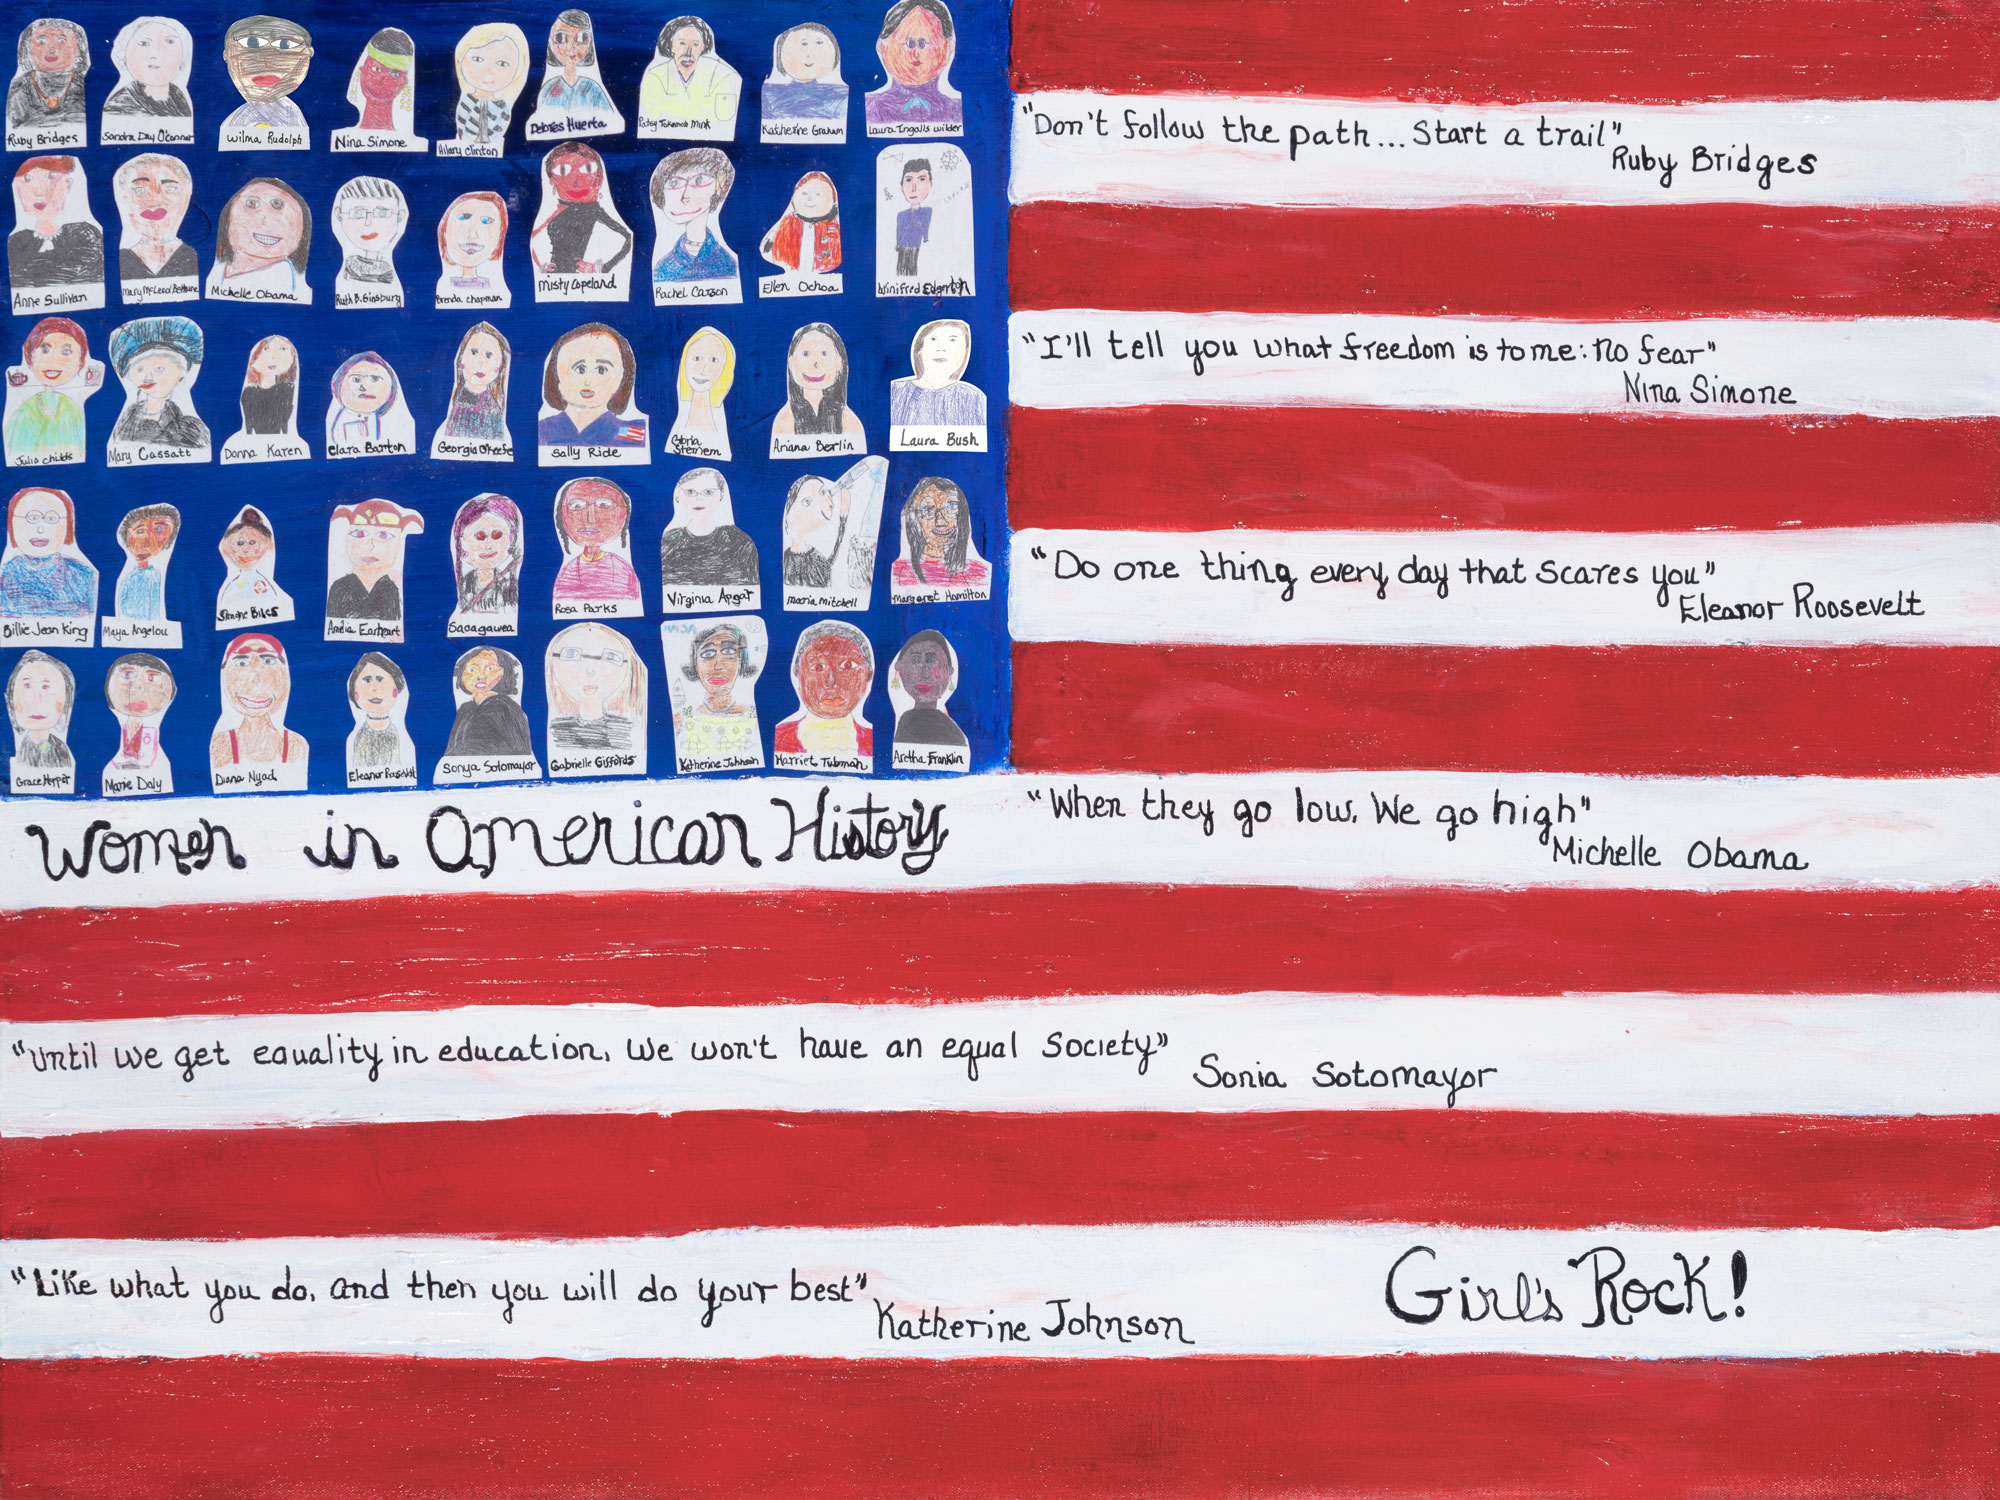 Ruby Bridges
Sandra Day O'Connor
Wilma Rudolph
Nina Simone
Hilary Clinton
Delores Huerta
Patsy Takemoto Mink
Katherine Graham
Laura Ingalls Wilder
"Don't follow the path... Start a trail"
Ruby Bridges
Anne Sullivan
Mary McLeod Bethune
Michelle Obama
Ruth B. Ginsburg
Brenda chapman
Misty Copeland
Rachel Carson
Ellen Ochoa
Winifred Edgerton
"I'll tell you what freedom is to me: no fear"
Nina Simone
Julia childs
Mary Cassatt
Donna Karen
Clara Barton
Georgia O'Keefe
Sally Ride
Gloria
Steinem
Ariana Berlin
Laura Bush
"Do one thing every day that scares you"
Eleanor Roosevelt
Billie Jean King
Maya Angelou
Simone Biles
Amelia Earheart
Sacagawea
Rosa Parks
Virginia Apgar
maria mitchell
Margaret Hamilton
Grace Hopper
Marie Daly
Diana Nyad
Eleanor Roosevelt
Sonya Sotomayor
Gabrielle Giffords
Katherine Johnson
Harriet Tubman
Aretha Franklin
Women in American History
"When they go low, We go high"
Michelle Obama
"Until we get equality in education, we won't have an equal society"
Sonia Sotomayor
"Like what you do, and then you will do your best"
Katherine Johnson
Girl's Rock!